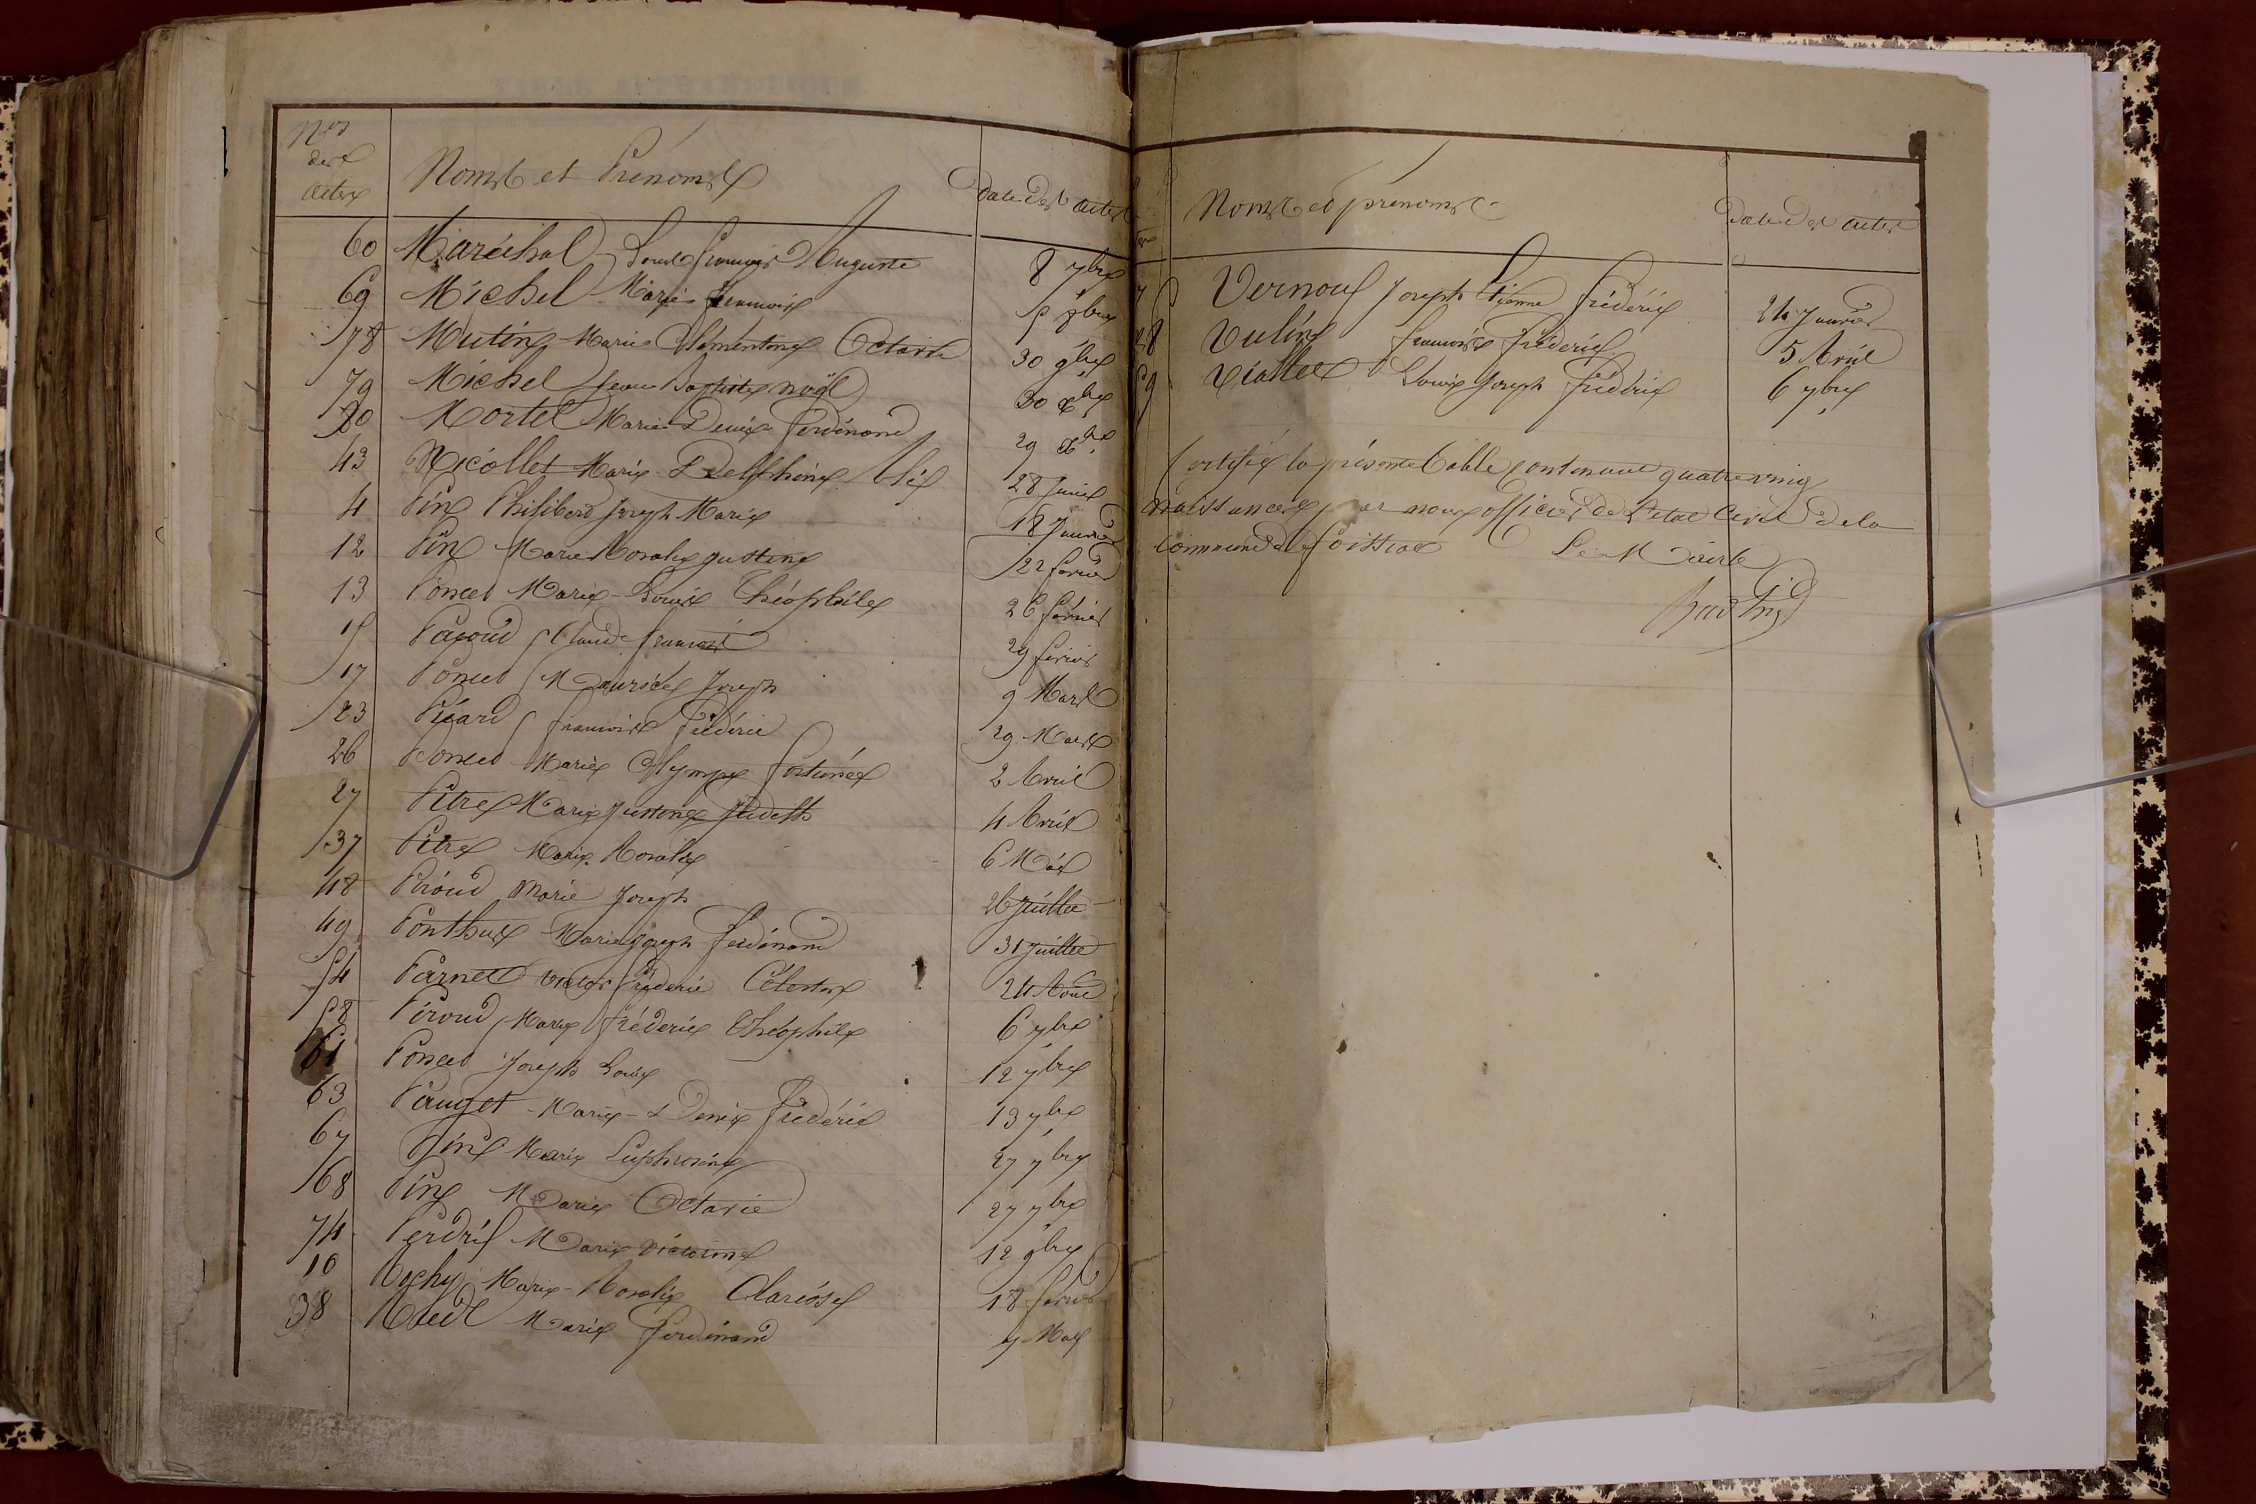 Nos
des
actes
Noms et Prénoms
Date des actes
60 Maréchal Louis françois Auguste 8 7bre
69 Michel Marie françois 8bre
78 Mutin Marie Clémentine Octavie 30 9bre
79 Michel Jean Baptiste noël 20 Xbre
80 Mortel Marie Denis ferdinand 29 Xbre
43 Nicollet Marie Delphine 28 Juin
4 Pin Philibert Joseph Marie 18 Janvier
12 Pin Marie Rosalie gustine 22 fevrier
13 Poncet Marie Louis Théophile 26 fevrier
15 Pacoud Claude françois 29 fevrier
17 Poncet Maurice Joseph 9 Mars
23 Picard françois Frédéric 29 Mars
26 Poncet Marie Olympe fortunée 2 Avril
27 Pitre Marie Justine Judith 4 Avril
37 Pitre Marie Rosalie 6 Mai
48 Péroud Marie Joseph 26 Juillet
49 Ponthus Marie Joseph ferdinand 31 Juillet
54 Parnet victor Fréderic Célestin 24 Aout
58 Péroud Marie Fréderic Théophile 6 7bre
61 Poncet Joseph Louis 12 7bre
63 Pauget Marie Denis Frédéric 13 7bre
67 Pin Marie Euphrosine 27 7bre
68 Pin Marie Octavie 27 7bre
74 Perdrix Marie victorine 12 9bre
10 Rochy Marie Rosalie 18 fevrier
38 Marie ferdinand 7 Mai
Noms et prenoms
Date des actes
7 Vernoux Joseph Etienne frédéric 24 Janvier
28 Vulin françoise frédéric 5 Avril
59 Viallet Louis Joseph frédéric 6 7bre
Certifié la présente table contenant quatrevingt
naissances par nous officier de l'état Civil de la
commune de foissiat Le Maire